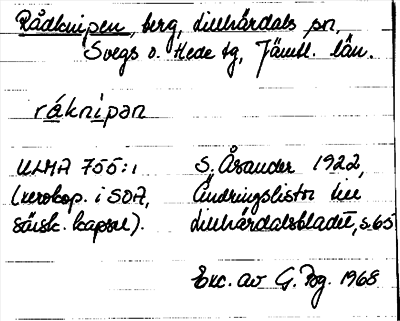 Rådknipen, berg, Lillhärdals sn,
Svegs o. Hede tg, Jämtl. län.
råknipən
ULMA 755:1 S. Åsander 1922,
(xerokop. i SOA, Ändringslistor till
särsk. kapsel). Lillhärdalsbladet, s. 65
Exc. av G. Pog. 1968